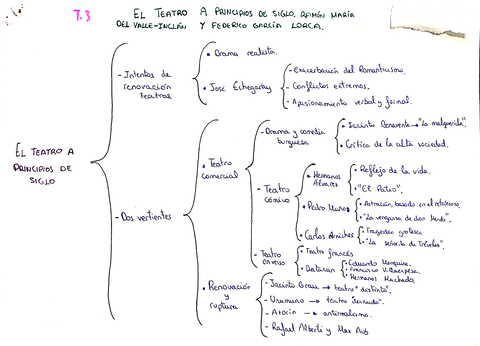 T.3
EL TEATRO A PRINCIPIOS DE SIGLO. RAMÓN MARÍA
DEL VALLE-INCLÁN Y FEDERICO GARCÍA LORCA.
EL TEATRO A
PRINCIPIOS DE
SIGLO
- Intentos de
renovación
teatral
• Drama realista.
• José Echegaray
- Exacerbación del Romanticismo.
- Conflictos extremos.
- Apasionamiento verbal y formal.
- Dos vertientes
• Teatro
comercial
- Drama y comedia
burguesa
• Jacinto Benavente → "La malquerida".
• Crítica de la alta sociedad.
- Teatro
cómico
• Hermanos
Álvarez
• Reflejo de la vida.
• "El Patio".
• Pedro Muñoz
• Astracán, basado en el
• "La venganza de don Mendo".
• Carlos Arniches
• Tragedia grotesca
• "La señorita de Trévelez".
- Teatro
en verso
• Teatro francés
• Destacan
• Eduardo Marquina.
• Francisco Villaespesa.
• Hermanos Machado.
• Renovación
y
ruptura
• Jacinto Grau → teatro "distinto".
- Unamuno → teatro "desnudo".
- Azorín → antirrealismo.
- Rafael Alberti y Max Aub